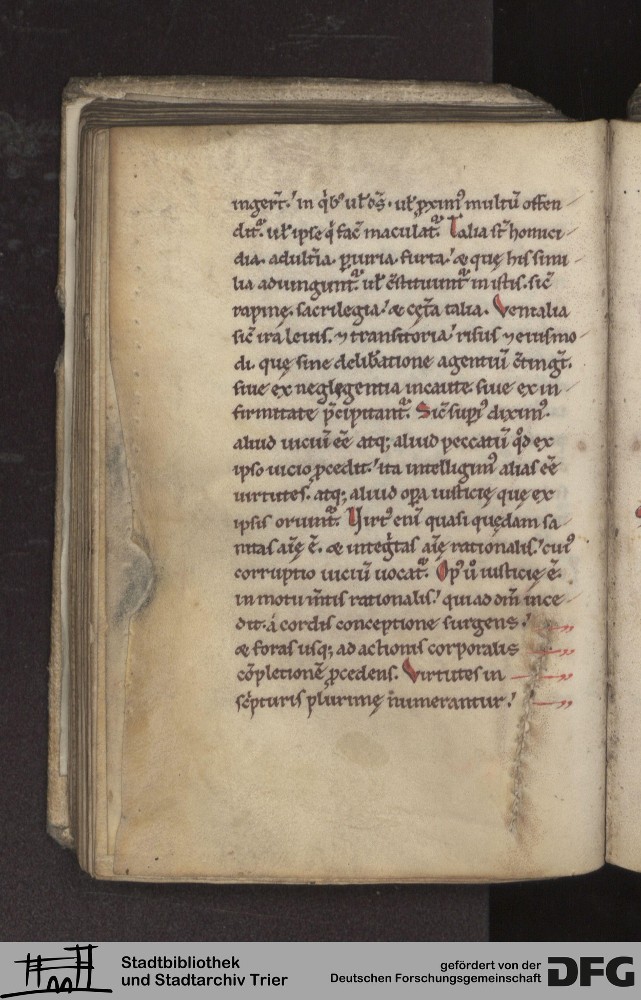 ingerit᷒. in q̇bꝰ uł d̄s. uł ꝓximꝰ multū offen
dit᷒. uł ipse q̇ fac̄ maculat᷒. Talia st̄ homici
dia. adult̄ia. ꝑiuria. furta. & quę his simi
lia adiungunt᷒. uł c̄stituunt᷒ in istis. sic̄
rapinę. sacrilegia. & cęt̄a talia. Venialia
sic̄ ira leuis. ⁊ transitoria. risus ⁊ eiusmo
di. quę sine delib̄atione agentiū c̄tinḡt.
siue ex neglęgentia incaute. siue ex in
firmitate p̄cipitant᷒. Sic̄ supꝰ diximꝰ.
aliud uiciū eē atq; aliud peccatū qd̄ ex
ipso uicio ꝓcedit. ita intelligimꝰ alias eē
uirtutes. atq; aliud oꝑa iusticię quę ex
ipsis oriunt᷒. Virtꝰ eni quasi quędam sa
nitas aīę ē. & inteġtas aīę rationalis. cuiꝰ
corruptio uiciū uocat᷒. Opꝰ u̇ iusticię ē.
in motu m̄tis rationalis. qui ad dm̄ ince
dit. á cordis conceptione surgens.
& foras usq; ad actionis corporalis
cōpletionē ꝓcedens. Virtutes in
sc̄pturis plurimę inumerantur.
Stadtbibliothek
und Stadtarchiv Trier
gefördert von der
Deutschen Forschungsgemeinschaft
DFG